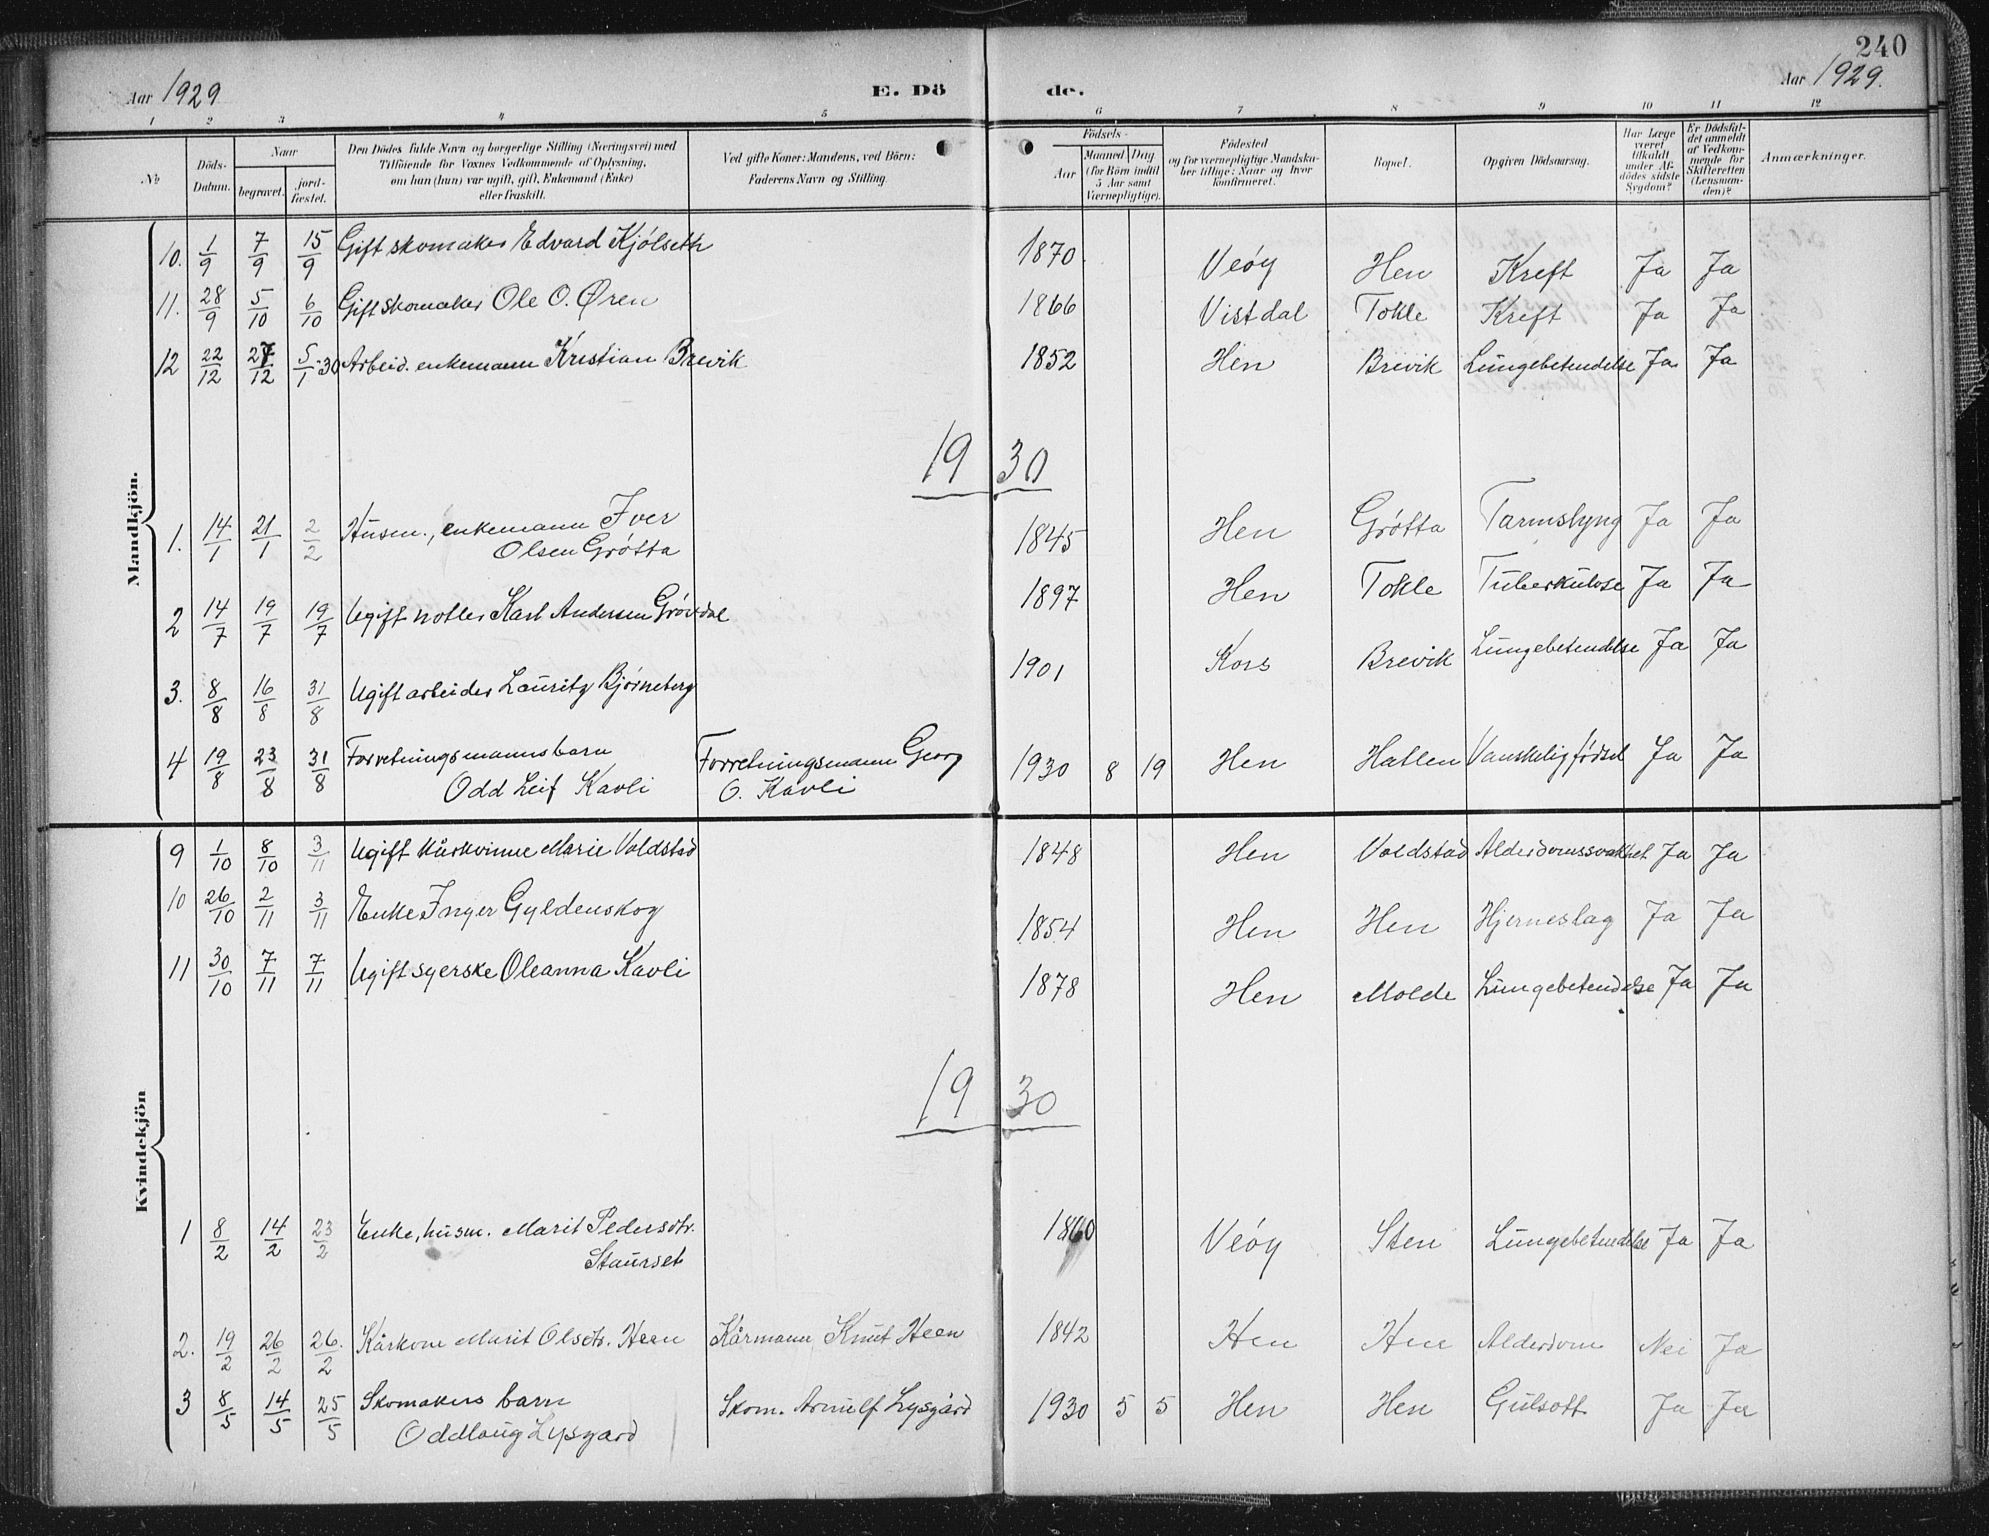 240
Aar 1929
E. Dö
de.
Aar 1929.
1 2 3 4 5 6 7 8 9 10 11 12
№ Döds-Datum. Naar begravet. jord-fæstet. Den Dödes fulde Navn og borgerlige Stilling (Næringsvei) med Tilföiende for Voxnes Vedkommende af Oplysning, om han (hun) var ugift, gift, Enkemand (Enke) eller fraskilt. Ved gifte Koner: Mandens, ved Börn: Faderens Navn og Stilling. Födsels- Aar Maaned Dag (for Börn indtil 5 Aar samt Værnepligtige). Födested og for værnepligtige Mandskaber tillige: Naar og hvor konfirmeret. Bopæl. Opgiven Dödsaarsag. Har Læge været tilkaldt under Afdödes sidste Sygdom? Er Dödsfaldet anmeldt af Vedkommende for Skifteretten (Lensmanden)? Anmærkninger.
Mandkjön.
10. 1/9 7/9 15/9 Gift skomaker Edvard Kjølseth 1870 Veøy Hen Kreft Ja Ja
11. 28/9 5/10 6/10 Gift skomaker Ole O. Øren 1866 Vistdal Tokle Kreft Ja Ja
12 22/12 27/12 5/1-30 Arbeid. enkemann Kristian Brevik 1852 Hen Brevik Lungebetendelse Ja Ja
19 30
1. 14/1 21/1 2/2 Husm., enkemann Iver 1845 Hen Grøtta Tarmslyng Ja Ja
Olsen Grøtta
2 14/7 19/7 19/7 Ugift Karl Andersen Grøvdal 1897 Hen Tokle Tuberkulose Ja Ja
3. 8/8 16/8 31/8 Ugift arbeider Lauritz Bjørneberg 1901 Kors Brevik Lungebetendelse Ja Ja
4 19/8 23/8 31/8 Forretningsmannsbarn Forretningsmann Georg 1930 8 19 Hen Hatlen Vanskelig fødsel Ja Ja
Odd Leif Kavli O. Kavli
Kvindekjön
9 1/10 8/10 3/11 Ugift kårkvinne Marie Voldstad 1848 Hen Voldstad Alderdomssvakhet Ja Ja
10 26/10 2/11 3/11 Enke Inger Gyldenskog 1854 Hen Hen Hjerneslag Ja Ja
11 30/10 7/11 7/11 Ugift syerske Oleanna Kavli 1878 Hen Molde Lungebetendelse Ja Ja
19 30
1 8/2 14/2 23/2 Enke, husm. Marit Pedersdtr. 1860 Veøy Sten Lungebetendelse Ja Ja
Staurset
2. 19/2 26/2 26./2 Kårkone Marit Olsdtr. Heen Kårmann Knut Heen 1842 Hen Hen Alderdom Nei Ja
3 8/5 14/5 25/5 Skomakers barn Skom. Arnulf Lysgård 1930 5 5 Hen Hen Gulsott Ja Ja
Oddlaug Lysgård